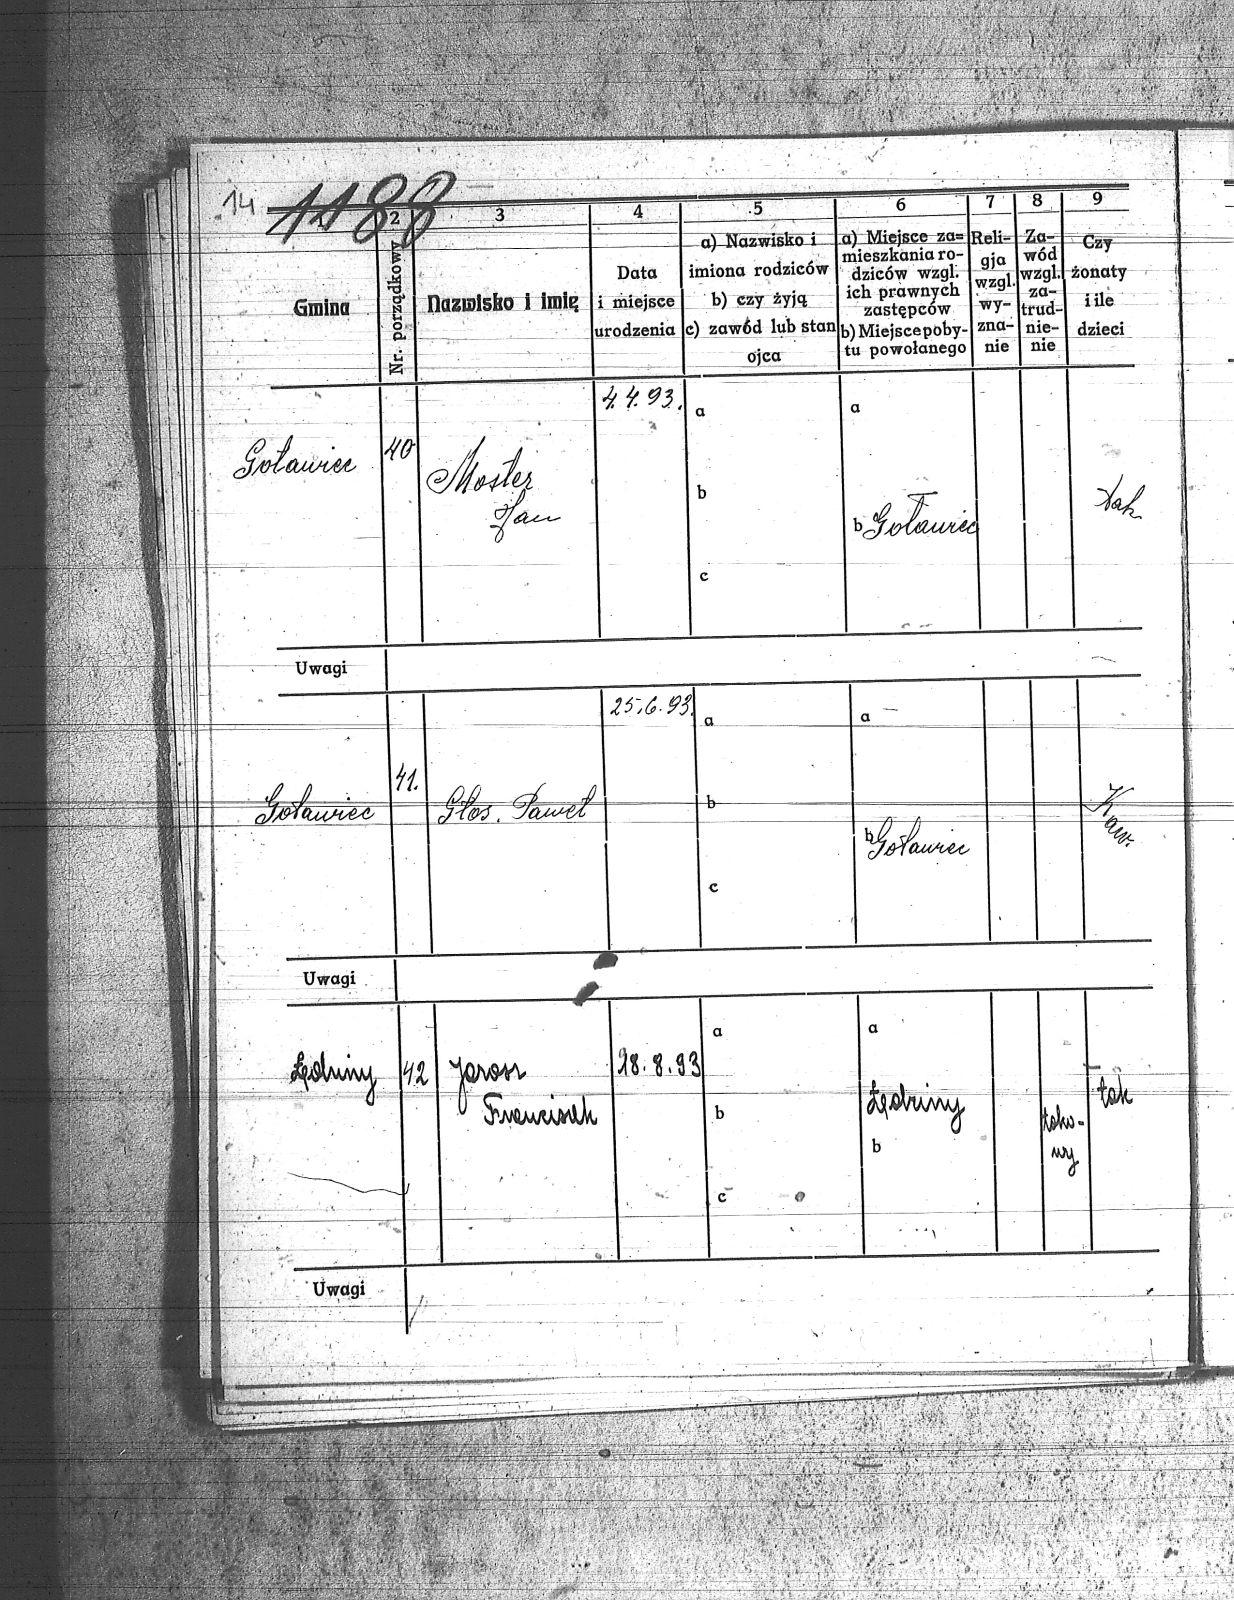 14 1188
2 3 4 5 6 7 8 9
Gmina
Nr. porządkowy
Nazwisko i imię
Data
i miejsce
urodzenia
a) Nazwisko i
imiona rodziców
b) czy żyją
c) zawód lub stan
ojca
a) Miejsce za=
mieszkania ro-
dziców wzgl.
ich prawnych
zastępców
b) Miejsce poby-
tu powołanego
Reli-
gja
wzgl.
wy-
zna-
nie
Za-
wód
wzgl.
za-
trud-
nie-
nie
Czy
żonaty
i ile
dzieci
4.4.93. a a
Goławiec 40 Moster
Jan
b
b Goławiec tak
c
Uwagi
25.6.93. a a
41.
Goławiec Głos. Paweł b Kaw.
b Goławiec
c
Uwagi
a a
Lędziny 42 Jarosz 28.8.93
Franciszek
Lędziny tak
b
b
c
Uwagi